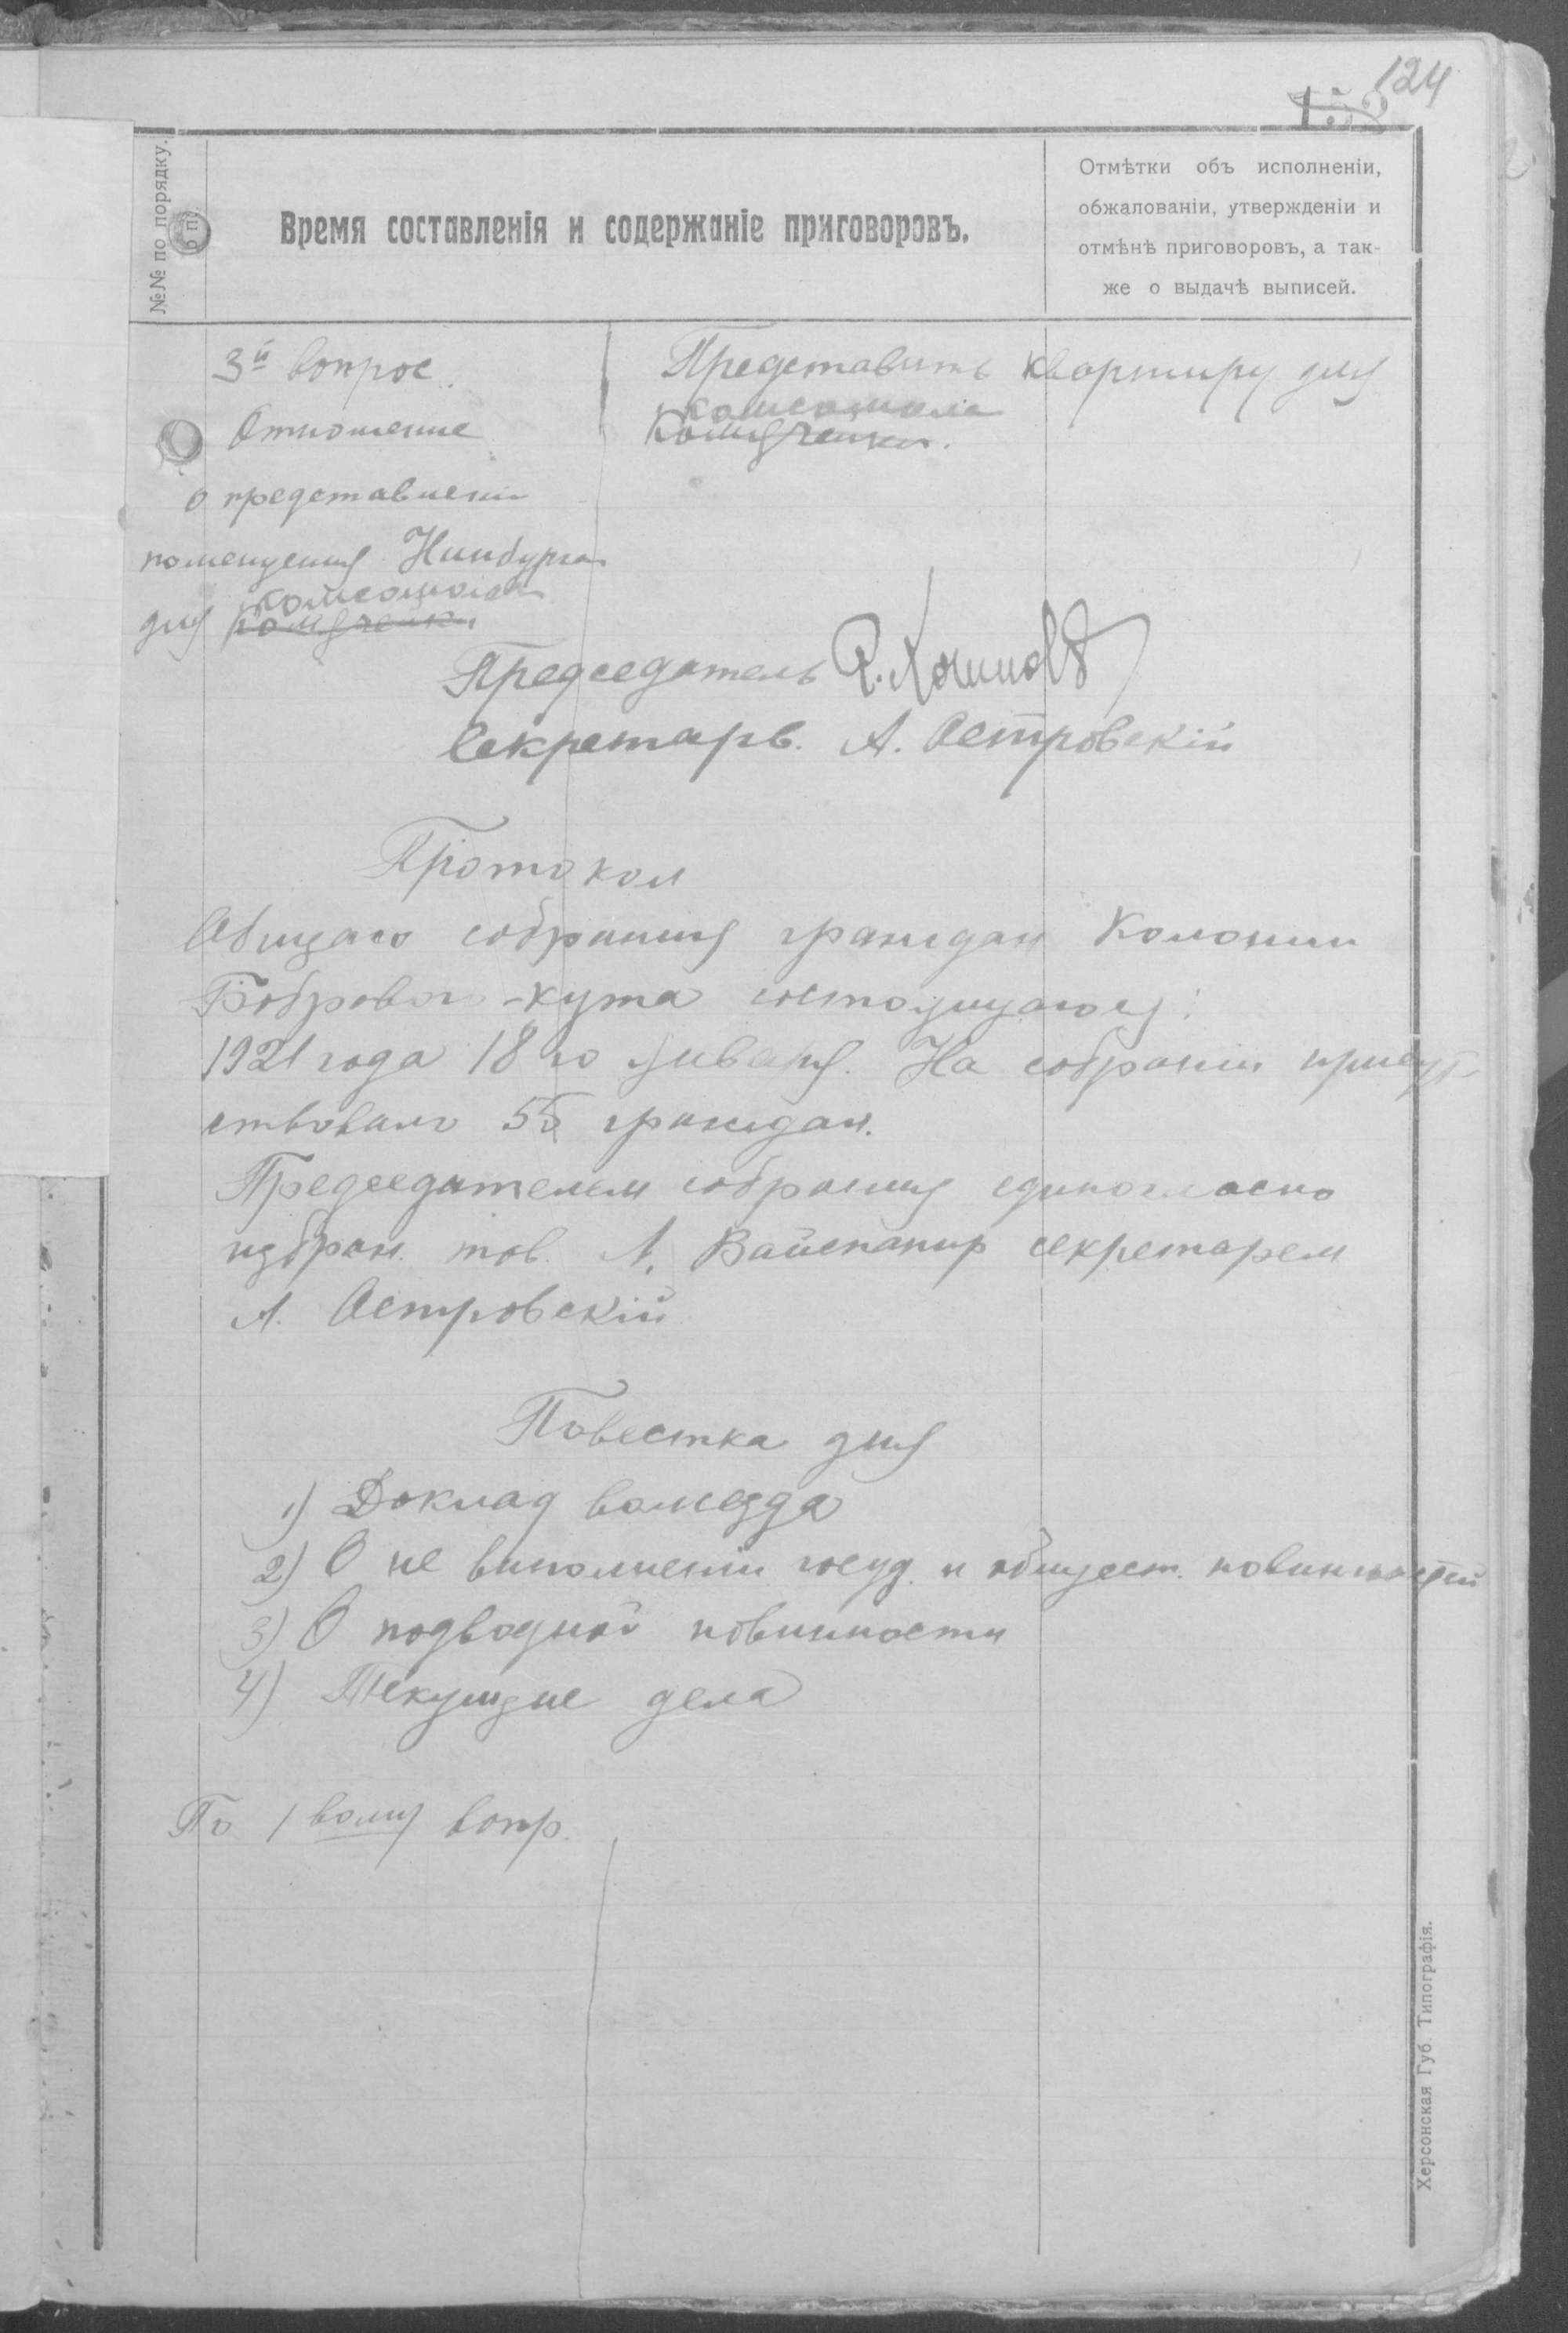 124
№№ по порядку.
Время составленія и содержаніе приговоровъ.
Отмѣтки объ исполненіи,
обжалованіи, утвержденіи и
отмѣнѣ приговоровъ, а так-
же о выдачѣ выписей.
3й вопрос.
Отношение
о представлении
помещения Нинбурга
комсомола
для Комячейки
Представить квартиру для
комсомола
Комячейки.
Председатель
Секретарь. А. Островскій
Протокол
Общаго собрания граждан Колонии
Бобровог-кута состоящагося:
1921 года 18го января. На собрании присут-
ствовало 55 граждан.
Председателем собрания единогласно
избран тов. А. Вайспапир секретарем
А. Островскій
Повестка дня
1) Доклад волсезда
2) О не выполнении госуд. и общест. повинностей
3) О подводной повинности
4) Текущие дела
По 1 вому вопр.
Херсонская Губ. Типографія.